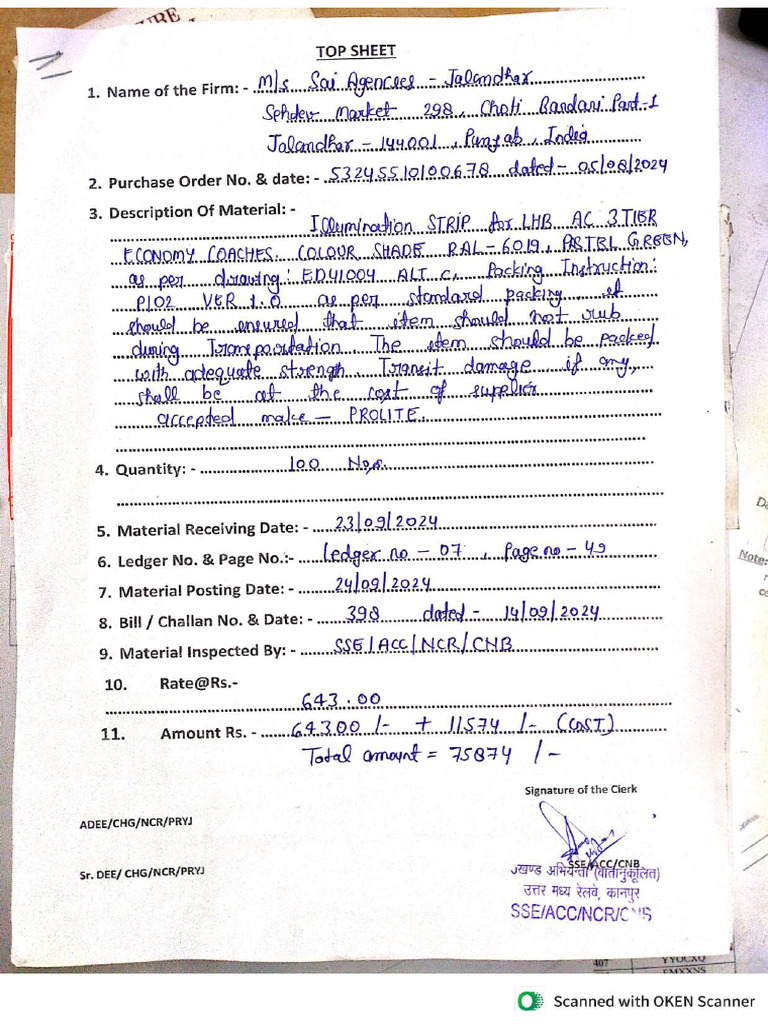 TOP SHEET
1. Name of the Firm: - M/s Sai Agencees - Jalandhar
Sehdev Market 298, Choti Bardari Part-1
Jalandhar - 144001, Punjab, India
2. Purchase Order No. & date: - 53245510100678 dated - 05/08/2024
3. Description Of Material: -
Illumination STRIP for LHB AC 3TIER
ECONOMY COACHES. COLOUR SHADE RAL-6019, PASTEL GREEN,
as per drawing: ED41004 ALT. C, Packing Instruction:
P102 VER 1.0 as per standard packing. it
should be ensured that item should not rub
during Transportation. The item should be packed
with adequate strength. Transit damage if any,
shall be at the cost of supplier
accepted make - PROLITE.
4. Quantity: - 100 Nos.
5. Material Receiving Date: - 23/09/2024
6. Ledger No. & Page No.:- Ledger no - 07, Page no - 49
7. Material Posting Date: - 24/09/2024
8. Bill / Challan No. & Date: - 398 dated - 14/09/2024
9. Material Inspected By: - SSE/ACC/NCR/CNB
10. Rate@Rs.-
643.00
11. Amount Rs. - 64300 /- + 11574 /- (GST)
Total amount = 75874 /-
Signature of the Clerk
ADEE/CHG/NCR/PRYJ
SSE/ACC/CNB
Sr. DEE/ CHG/NCR/PRYJ
खण्ड अभियन्ता (वातानुकूलित)
उत्तर मध्य रेलवे, कानपुर
SSE/ACC/NCR/CNB
Note:
407 YYOCXQ
Scanned with OKEN Scanner